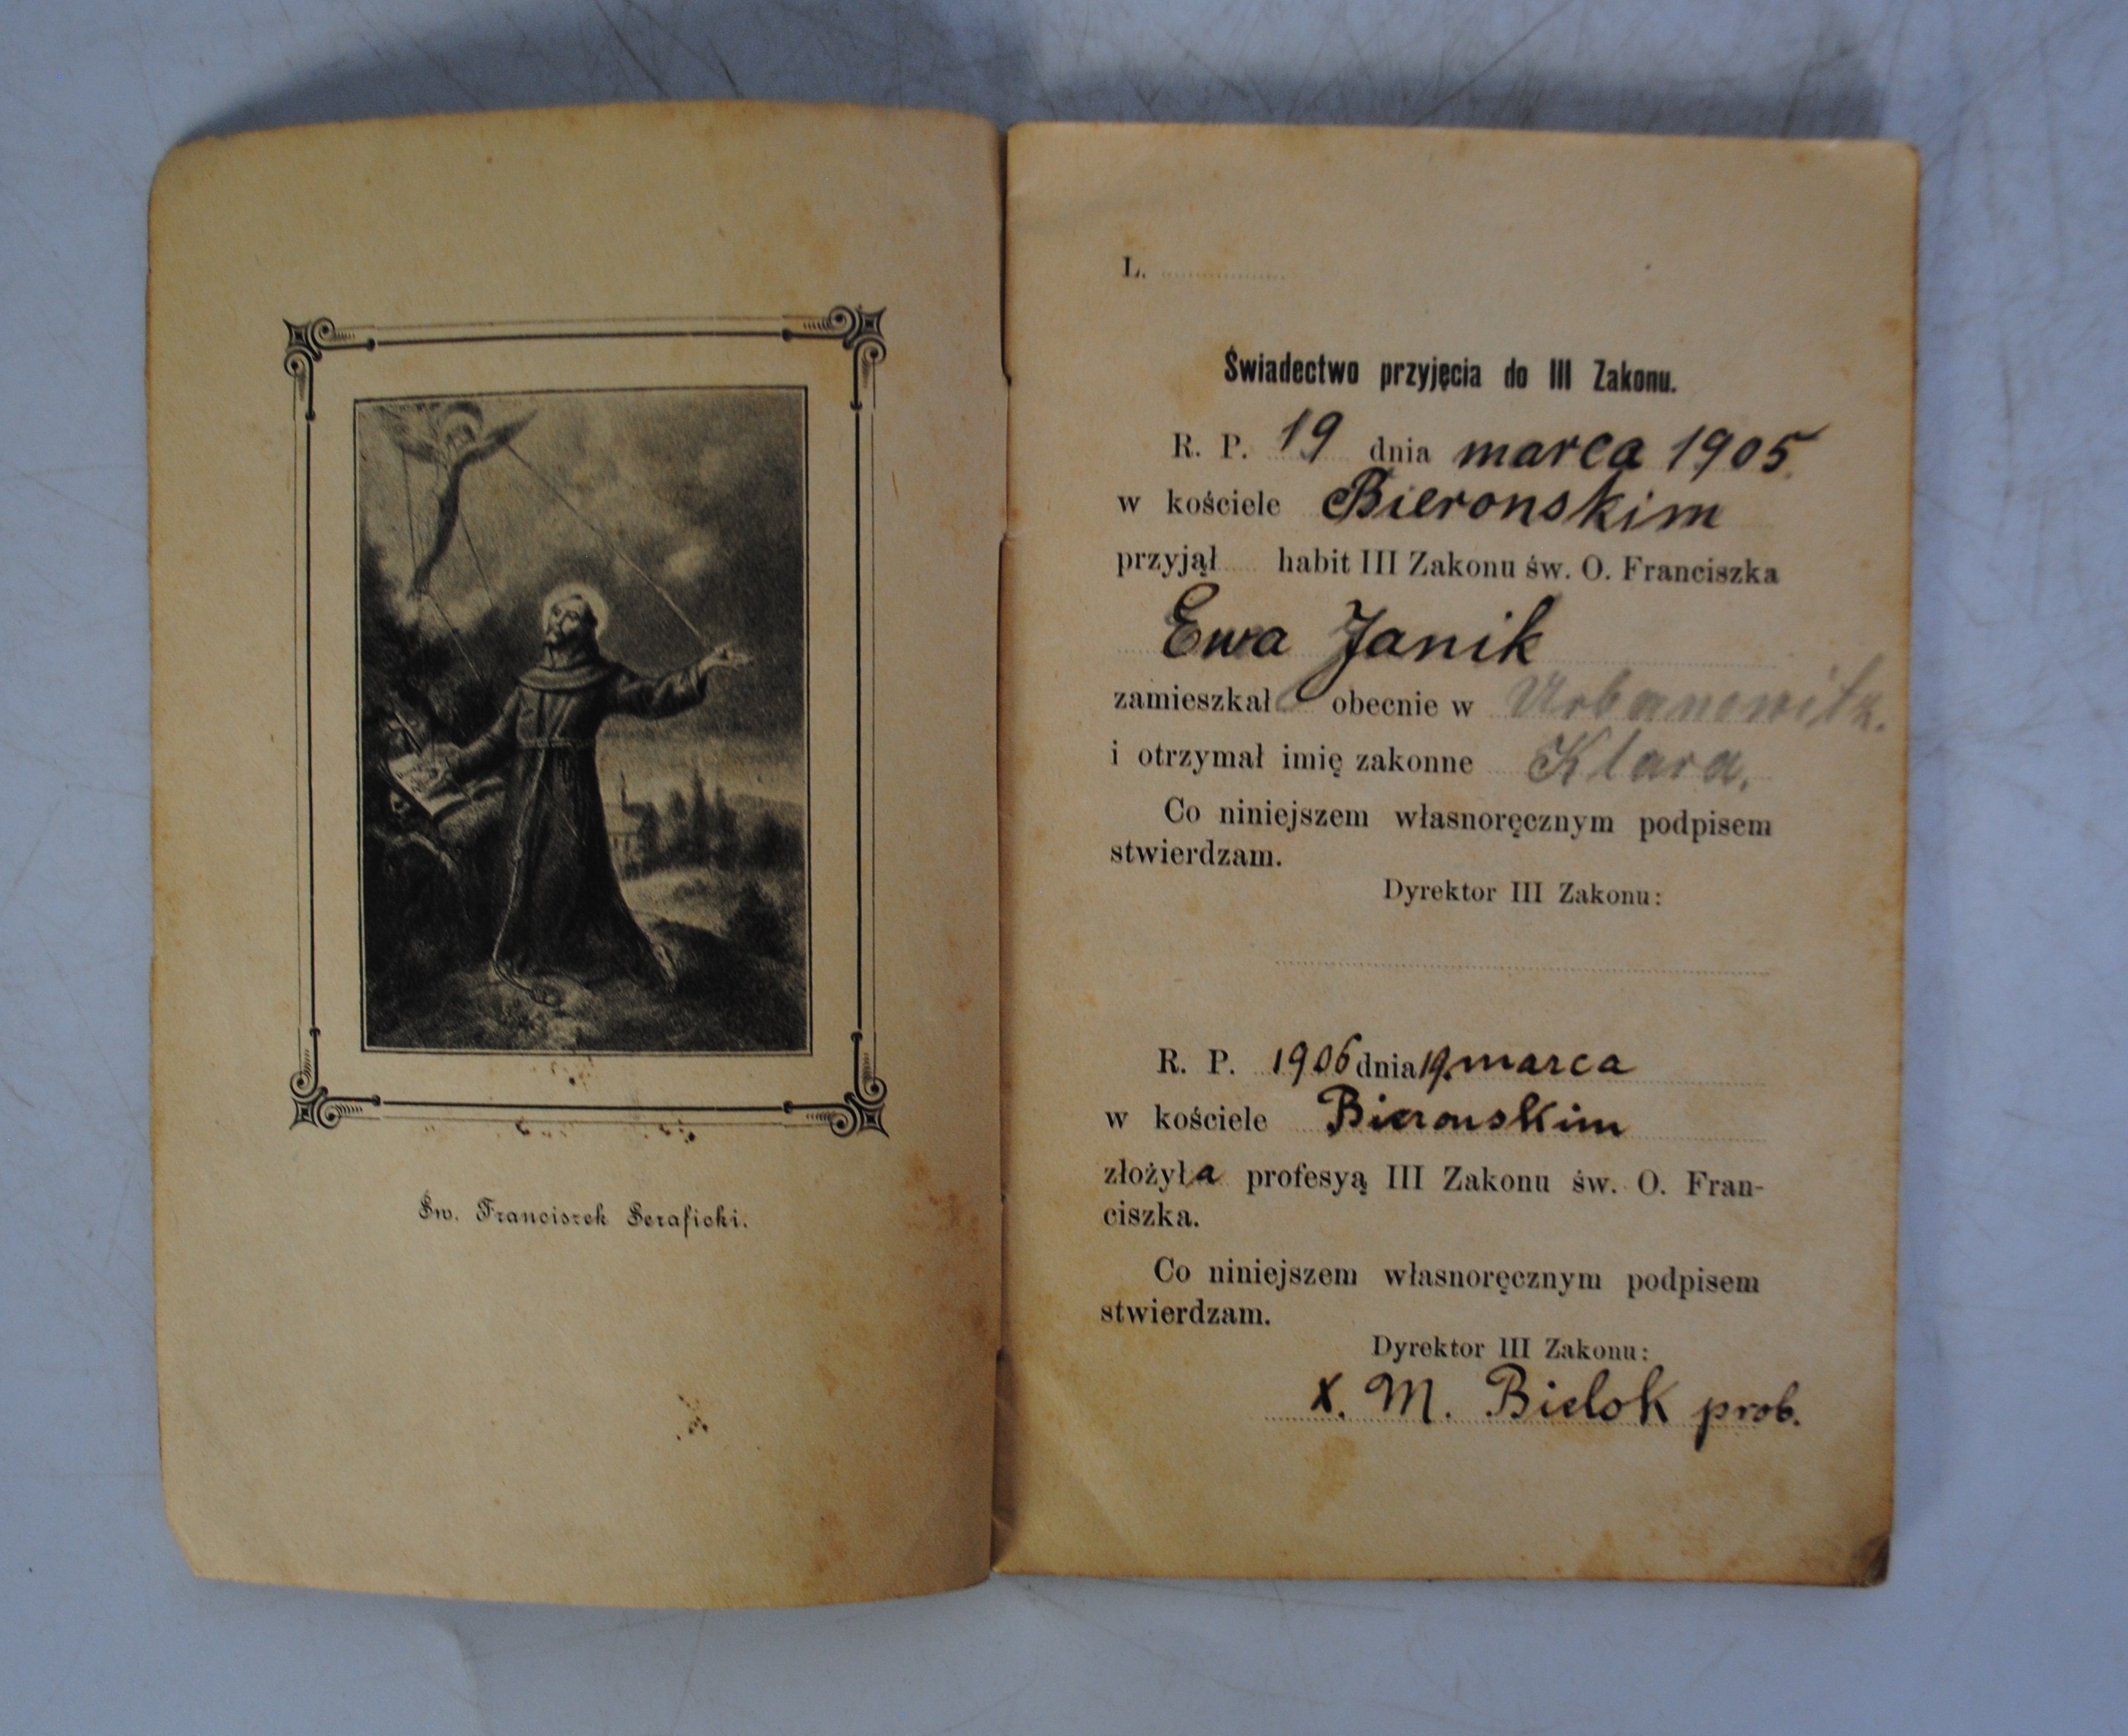 Św. Franciszek Seraficki.
L.
Świadectwo przyjęcia do III Zakonu.
R. P. 19 dnia marca 1905
w kościele Bieronskim
przyjął habit III Zakonu św. O. Franciszka
Ewa Janik
zamieszkał obecnie w Urbanowitz.
i otrzymał imię zakonne Klara.
Co niniejszem własnoręcznym podpisem
stwierdzam.
Dyrektor III Zakonu:
R. P. 1906 dnia 19. marca
w kościele Bieronskim
złożyła profesyą III Zakonu św. O. Fran-
ciszka.
Co niniejszem własnoręcznym podpisem
stwierdzam.
Dyrektor III Zakonu:
X. M. Bielok prob.